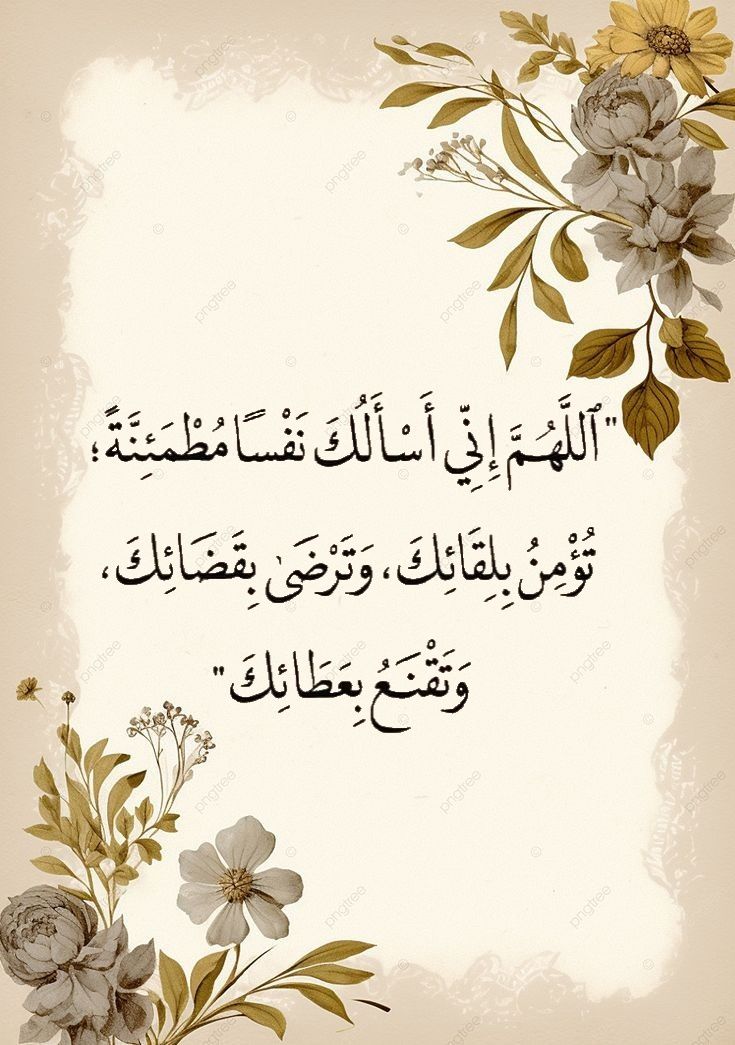 "ٱللَّهُمَّ إِنِّي أَسْأَلُكَ نَفْسًا مُطْمَئِنَّةً؛
تُؤْمِنُ بِلِقَائِكَ، وَتَرْضَىٰ بِقَضَائِكَ،
وَتَقْنَعُ بِعَطَائِكَ"
pngtree